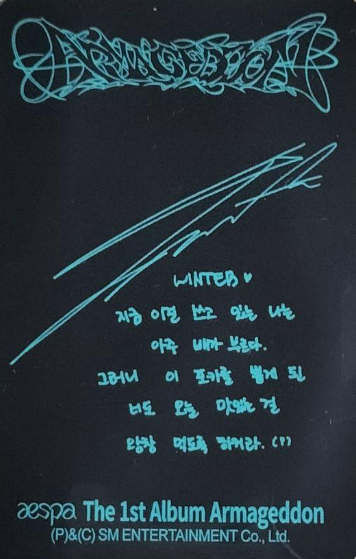 ARMAGEDDON
WINTER ♥
지금 이걸 쓰고 있는 나는
아주 배가 부르다.
그러니 이 포카를 뽑게 된
너도 오늘 맛있는 걸
왕창 먹도록 하거라. (?)
aespa The 1st Album Armageddon
(P)&(C) SM ENTERTAINMENT Co., Ltd.